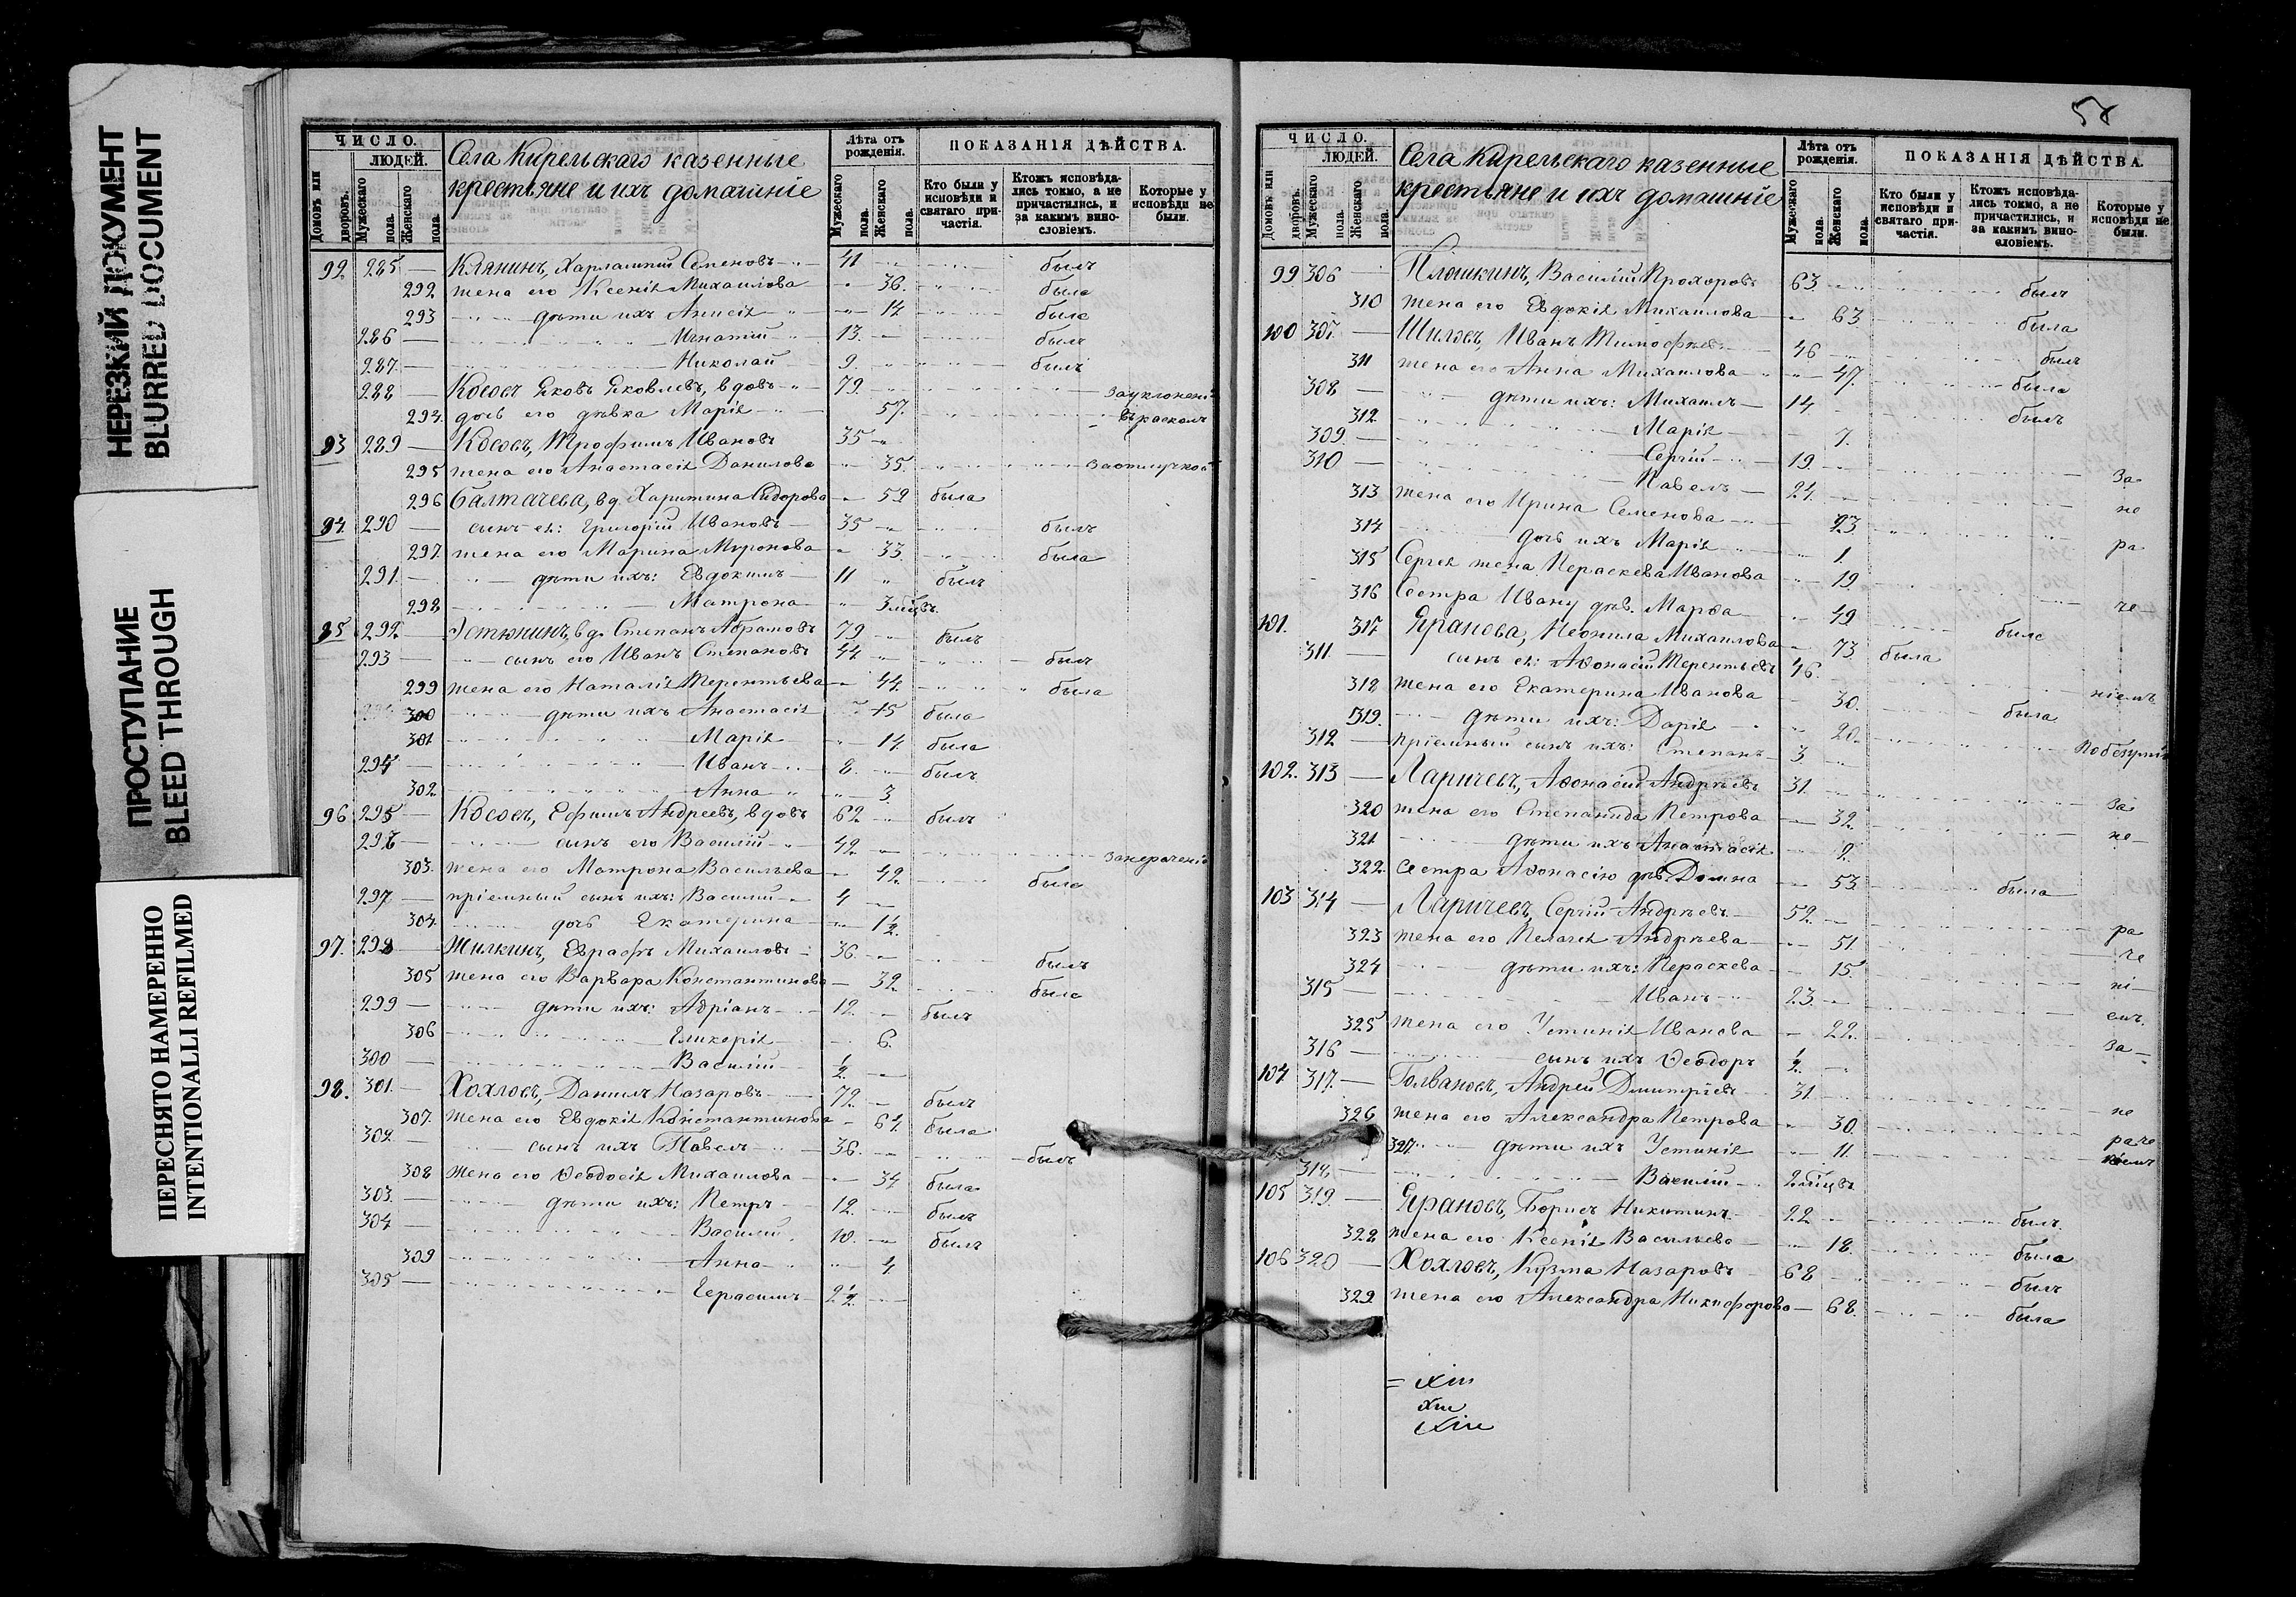 НЕРЕЗКИЙ ДОКУМЕНТ
BLURRED DOCUMENT
ПРОСТУПАНИЕ
BLEED THROUGH
ПЕРЕСНЯТО НАМЕРЕННО
INTENTIONALLI REFILMED
ЧИСЛО.
ЛЮДЕЙ.
Домовъ или дворовъ.
Мужескаго пола.
Женскаго пола.
Села Кирельскаго казенные
крестьяне и ихъ домашніе
Лѣта отъ рожденія.
Мужескаго пола.
Женскаго пола.
ПОКАЗАНІЯ ДѢЙСТВА.
Кто были у исповѣди и святаго причастія.
Ктожъ исповѣдались токмо, а не причастились, и за какимъ винословіемъ.
Которые у исповѣди не были.
92. 285 — Клянинъ, Харлампій Семеновъ 41 былъ
292 жена его Ксенія Михаилова 36. была
293 дѣти ихъ Анисія 14 была
286 — Игнатій 13. былъ
287. — Николай 9. былъ
288 — Косовъ Яковъ Яковлевъ, вдовъ 79. за уклонені
294. дочь его дѣвка Марія 57. въ расколъ
93 289 — Косовъ, Трофимъ Ивановъ 35
295 жена его Анастасія Данилова 35. за отлучкой
296 Балтачева, вд. Харитина Сидорова 59 была
94 290 — сынъ ея: Григорій Ивановъ 35 былъ
297. жена его Марина Миронова 33. была
291. — дѣти ихъ: Евдокимъ 11 былъ
298 Матрона 3 мѣцъ.
95 292. — Устюнинъ, вд. Степанъ Абрамовъ 79 былъ
293 — сынъ его Иванъ Степановъ 44 былъ
299 жена его Наталія Терентьева 44. была
300 дѣти ихъ Анастасія 15 была
301 Марія 14. была
294 — Иванъ 8. былъ
302. Анна 3
96 295 — Косовъ, Ефимъ Андреевъ, вдовъ 62 былъ
296 — сынъ его Василій 42. за нераченіе
303. жена его Матрона Васильева 42. была
297 — пріемный сынъ ихъ: Василій 4
304. дочь Екатерина 12.
97. 298 — Жилкинъ, Евграфъ Михаиловъ 36. былъ
305 жена его Варвара Константинова 32. была
299 — дѣти ихъ: Адріанъ 12. былъ
306 Гликерія 6.
300 — Василій ½
98. 301. — Хохловъ, Даніилъ Назаровъ 72. былъ
307. жена его Евдокія Константинова 64 была
302. — сынъ ихъ Павелъ 36. былъ
308 жена его Ѳеодосія Михаилова 34 была
303. — дѣти ихъ: Петръ 12. былъ
304 — Василій. 10. былъ
309 Анна 4
305 — Герасимъ 2½
58
ЧИСЛО.
ЛЮДЕЙ.
Домовъ или дворовъ.
Мужескаго пола.
Женскаго пола.
Села Кирельскаго казенные
крестьяне и ихъ домашніе
Лѣта отъ рожденія.
Мужескаго пола.
Женскаго пола.
ПОКАЗАНІЯ ДѢЙСТВА.
Кто были у исповѣди и святаго причастія.
Ктожъ исповѣдались токмо, а не причастились, и за какимъ винословіемъ.
Которые у исповѣди не были.
99 306 — Плюшкинъ, Василій Прохоровъ 63. былъ
310 жена его Евдокія Михаилова 63. была
100 307. — Шиловъ, Иванъ Тимофѣевъ 46 былъ
311 жена его Анна Михаилова 47. была
308 — дѣти ихъ: Михаилъ 14 былъ
312. Марія 7.
309. — Сергій 19.
310 — Павелъ 24. За
313 жена его Ирина Семенова 23 не
314 дочь ихъ Марія 1. ра
315 Сергея жена Пераскева Иванова 19.
316 Сестра Ивану дѣв. Марѳа 49 была че
101. 317 Яранова, Неонила Михаилова 73 была
311. — сынъ ея: Аѳонасій Терентьевъ 46. ніемъ
318 жена его Екатерина Иванова 30. была
319. дѣти ихъ: Дарія 20. по безумію
312 — пріемный сынъ ихъ: Степанъ 3
102. 313 — Ларичевъ, Аѳонасій Андрѣевъ 31. за
320 жена его Степанида Петрова 32. не
321 дѣти ихъ Анастасія 2.
322. сестра Аѳонасію дѣв. Домна 53. была
103 314 — Ларичевъ, Сергій Андрѣевъ 52. ра
323 жена его Пелагея Андрѣева 51. че
324 дѣти ихъ: Пераскева 15. ні
315 — Иванъ 23. емъ.
325 жена его Устинія Иванова 22. за
316 — сынъ ихъ Ѳеодоръ ½
104 317. — Голвановъ, Андрей Дмитріевъ 31. не
326 жена его Александра Петрова 30. раче
327. дѣти ихъ Устинія 11 ніемъ
318. — Василій 2 мѣцъ.
105 319 — Ярановъ, Борисъ Никитинъ 22 былъ.
328 жена его Ксенія Васильева 18. была
106 320 — Хохловъ, Козма Назаровъ 68 былъ
329 жена его Александра Никифорова 68. была